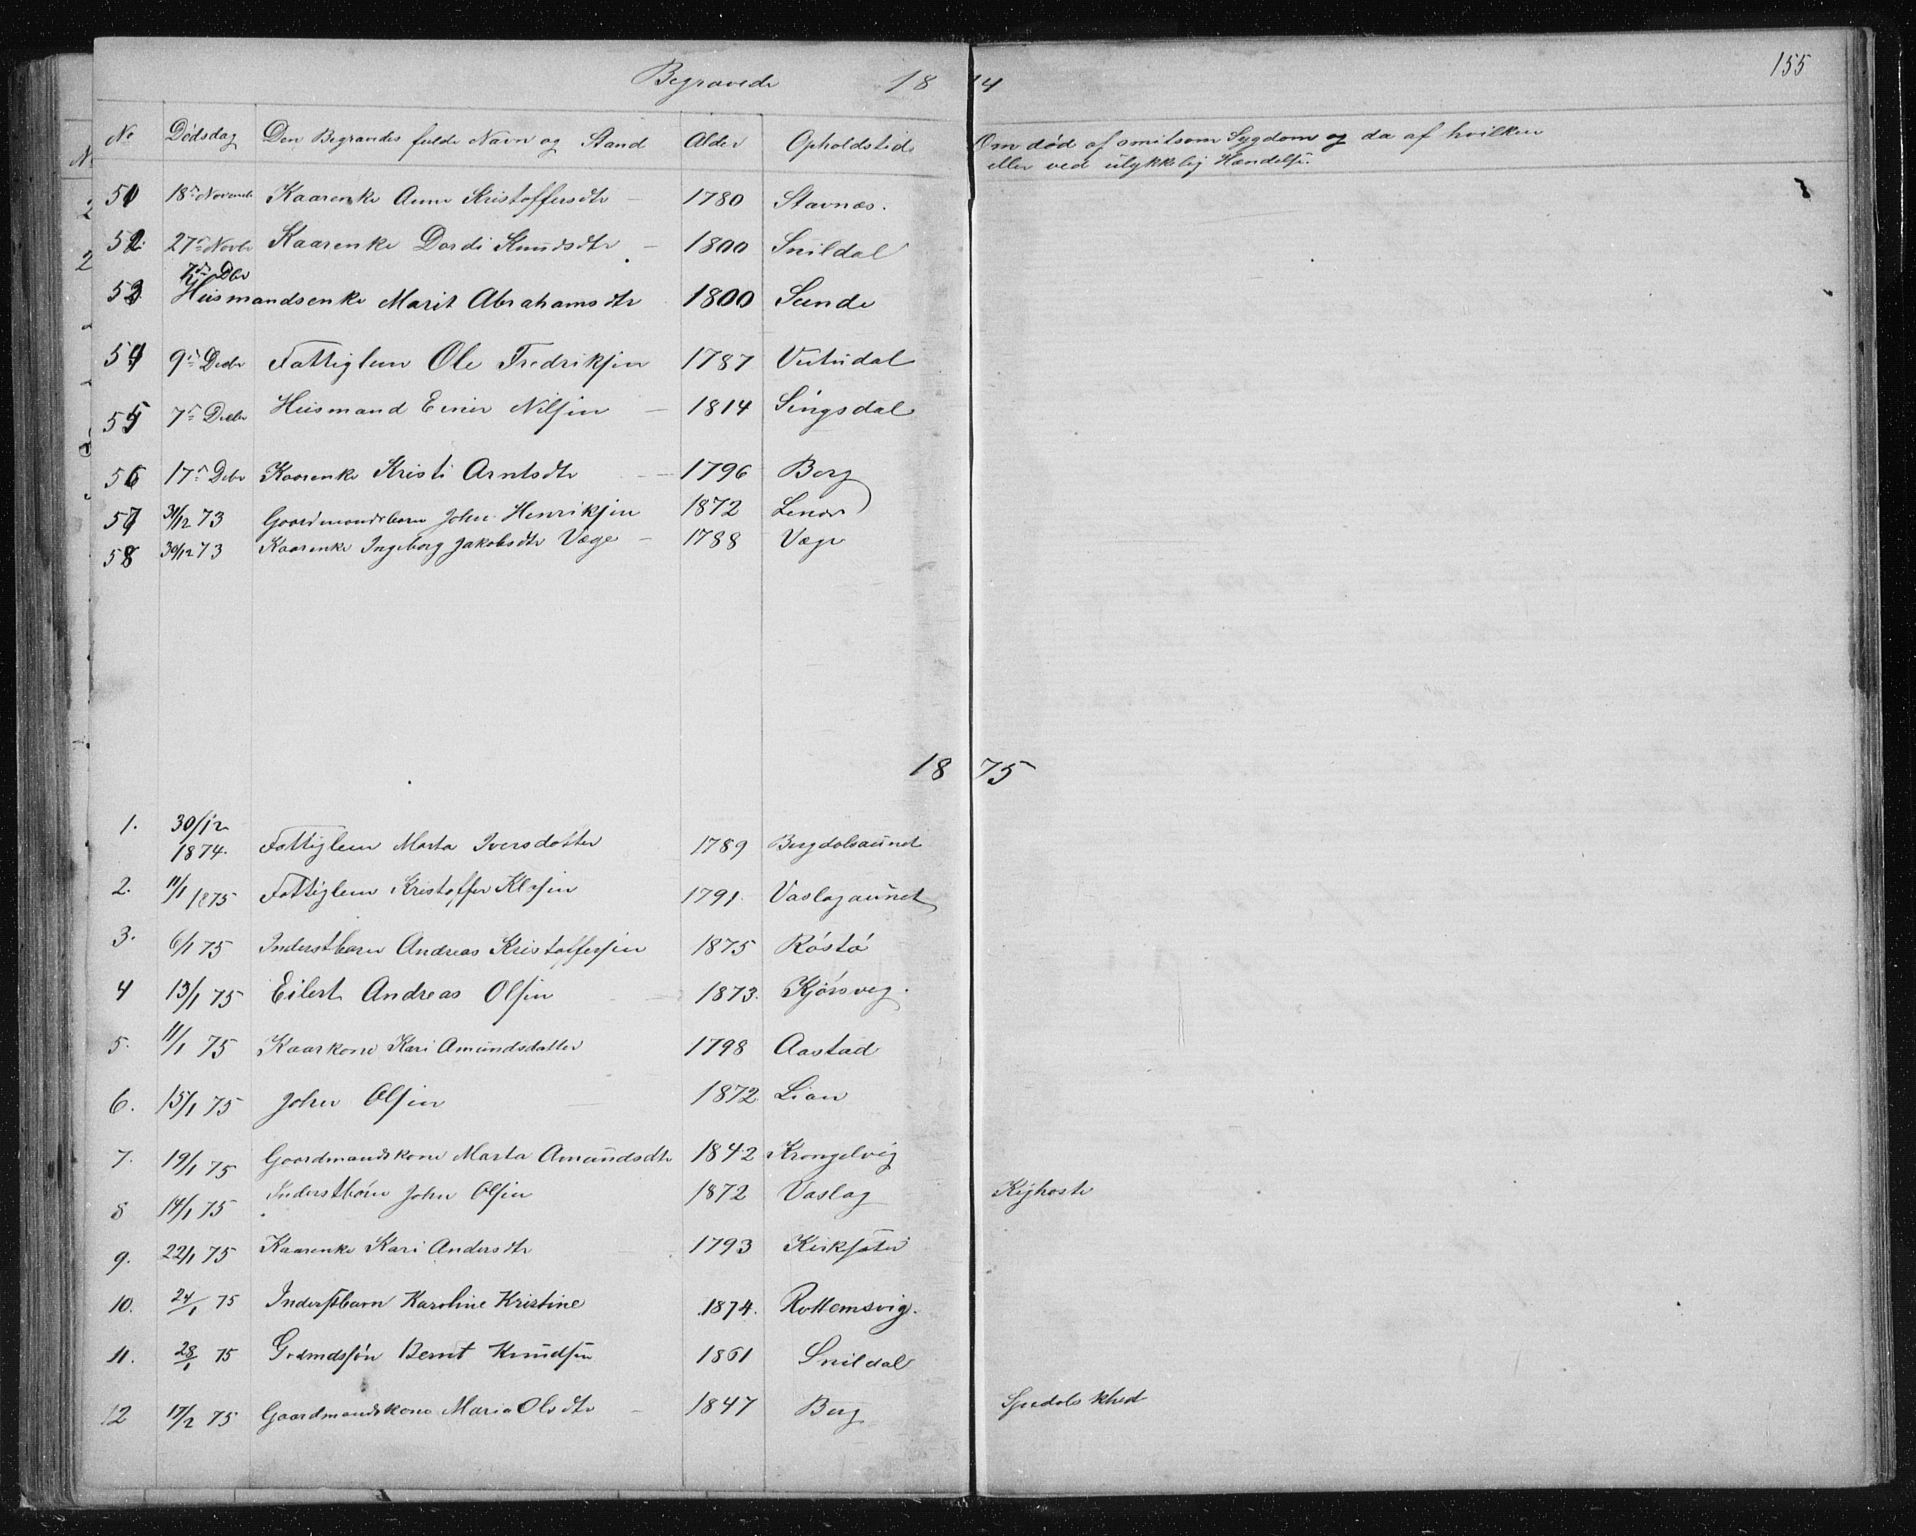 155
Begravede 18 74
No Dødsdag Den Begravedes fulde Navn og Stand Alder Opholdssted Om død af smitsom Sygdom og da af hvilken
eller ved ulykkelig Hændelse.
51 18de Novembr Kaarenke Anne Kristoffersdtr 1780 Stavnæs.
52. 27de Novbr Kaarenke Dordi Knudsdtr 1800 Snildal
7de Dbr
53 Husmandsenke Marit Abrahamsdtr 1800 Sunde
54 9de Decbr Fattiglem Ole Fredriksen 1787 Vutudal
55 7de Decbr Husmand Einer Nilsen 1814 Singsdal
56 17de Debr Kaarenke Kristi Arntsdtr 1796 Berg
57 31/12 73 Gaardmandsbarn John Henriksen 1872 Lenes
58 30/12 73 Kaarenke Ingeborg Jakobsdtr Væge 1788 Væge
18 75
1. 30/12
1874. Fattiglem Marta Iversdatter 1789 Bergdalsaunet
2. 11/1 1875 Fattiglem Kristoffer Elsen 1791. Vaslagaunet
3. 6/1 75 Inderstbarn Andreas Kristoffersen 1875 Røstø
4 13/1 75 Eilert Andreas Olsen 1873. Kjørsveg.
5. 11/1 75 Kaarkone Kari Amundsdatter 1798 Aastad
6. 15/1 75 John Olsen 1872 Lian
7. 19/1 75 Gaardmandskone Marta Amundsdtr 1842 Krongelvig
8 14/1 75 Inderstbarn John Olsen 1872 Vaslag Kighoste
9. 22/1 75 Kaarenke Kari Andersdtr 1793 Kirksæter
10. 24/1 75 Inderstbarn Karoline Kristine 1874. Rottemsvig.
11. 28/1 75 Grdmdssøn Bernt Knudsen 1861 Snildal
12 17/2 75 Gaardmandskone Maria Olsdtr 1847 Berg Spedalskhed